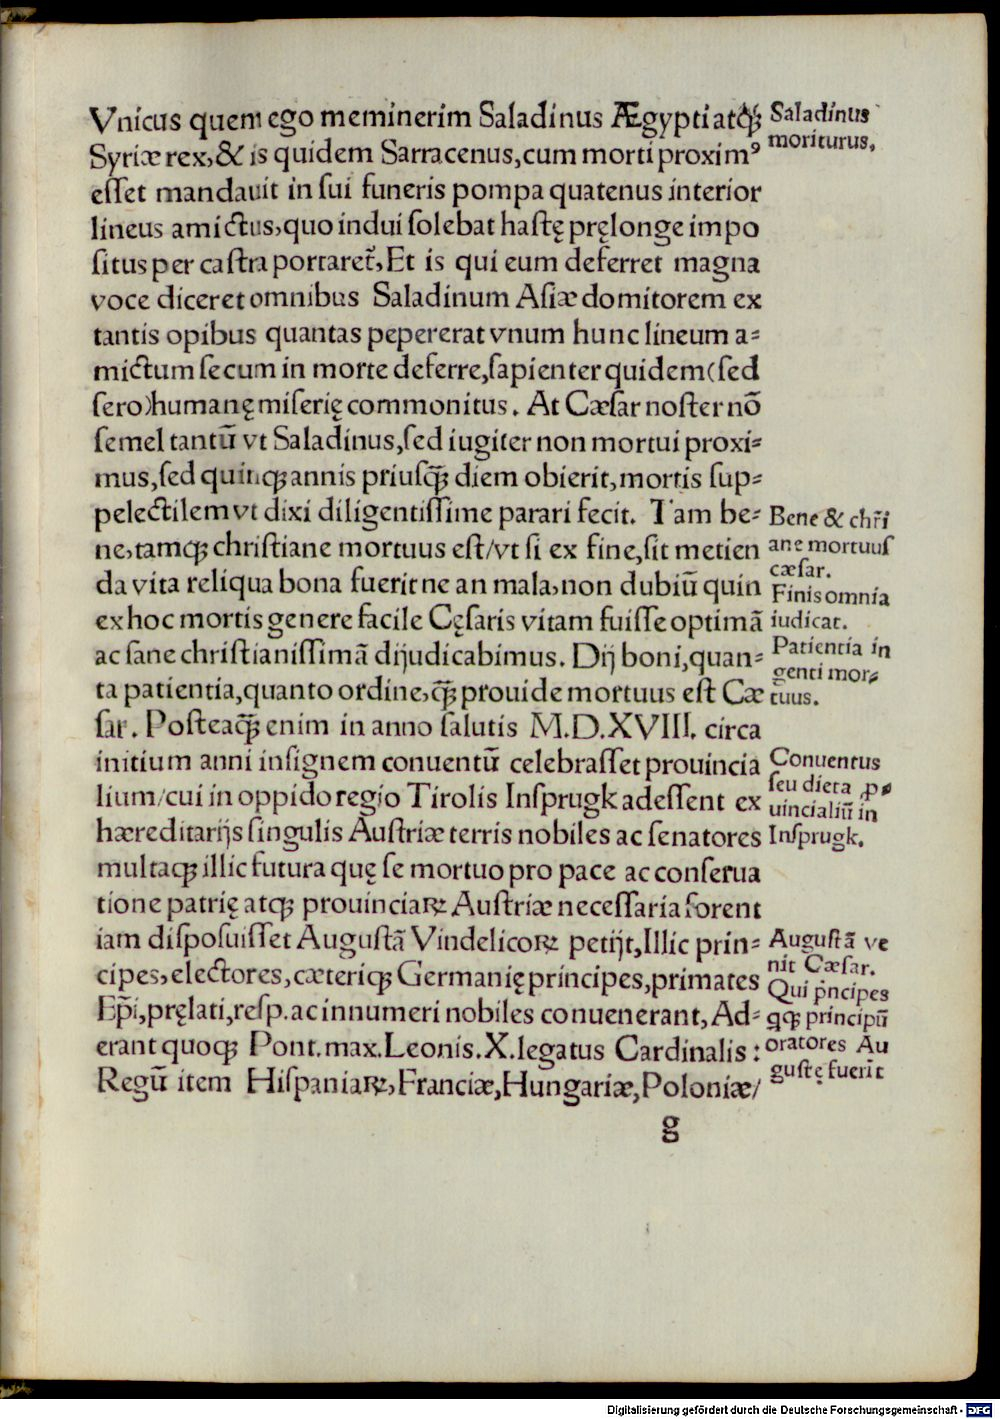 Vnicus quem ego meminerim Saladinus Ægypti atqꝫ
Syriæ rex, & is quidem Sarracenus, cum morti proximꝰ
eſſet mandauit in ſui funeris pompa quatenus interior
lineus amictus, quo indui ſolebat haſtę pręlonge impo
ſitus per caſtra portaret̃, Et is qui eum deferret magna
voce diceret omnibus Saladinum Aſiæ domitorem ex
tantis opibus quantas pepererat vnum hunc lineum a⸗
mictum ſecum in morte deferre, ſapienter quidem (ſed
ſero) humanę miſerię commonitus. At Cæſar noſter nō
ſemel tantū vt Saladinus, ſed iugiter non mortui proxi⸗
mus, ſed quinqꝫ annis priuſq̃ꝫ diem obierit, mortis ſup⸗
pelectilem vt dixi diligentiſſime parari fecit. Tam be⸗
ne, tamqꝫ chriſtiane mortuus eſt/ vt ſi ex fine, ſit metien
da vita reliqua bona fuerit ne an mala, non dubiū quin
ex hoc mortis genere facile Cęſaris vitam fuiſſe optimā
ac ſane chriſtianiſſimā dijudicabimus. Dij boni, quan⸗
ta patientia, quanto ordine, q̃ꝫ prouide mortuus eſt Cæ
ſar. Poſteaq̃ꝫ enim in anno ſalutis M.D.XVIII. circa
initium anni inſignem conuentū celebraſſet prouincia
lium/ cui in oppido regio Tirolis Inſprugk adeſſent ex
hæreditarijs ſingulis Auſtriæ terris nobiles ac ſenatores
multaqꝫ illic futura quę ſe mortuo pro pace ac conſerua
tione patrię atqꝫ prouinciaꝝ Auſtriæ neceſſaria forent
iam diſpoſuiſſet Auguſtā Vindelicoꝝ petijt, Illic prin⸗
cipes, electores, cæteriqꝫ Germanię principes, primates
Ep̃i, pręlati, reſp. ac innumeri nobiles conuenerant, Ad⸗
erant quoqꝫ Pont. max. Leonis. X. legatus Cardinalis :
Regū item Hiſpaniaꝝ, Franciæ, Hungariæ, Poloniæ/
g
Saladinus
moriturus,
Bene & chr̃i
ane mortuuſ
cæſar.
Finis omnia
iudicat.
Patientia in
genti mor⸗
tuus.
Conuentus
ſeu dieta ꝓ⸗
uincialiū in
Inſprugk.
Auguſtā ve
nit Cæſar.
Qui p̃ncipes
q̃qꝫ principū
oratores Au
guſtę fuer̃t
Digitalisierung gefördert durch die Deutsche Forschungsgemeinschaft - DFG